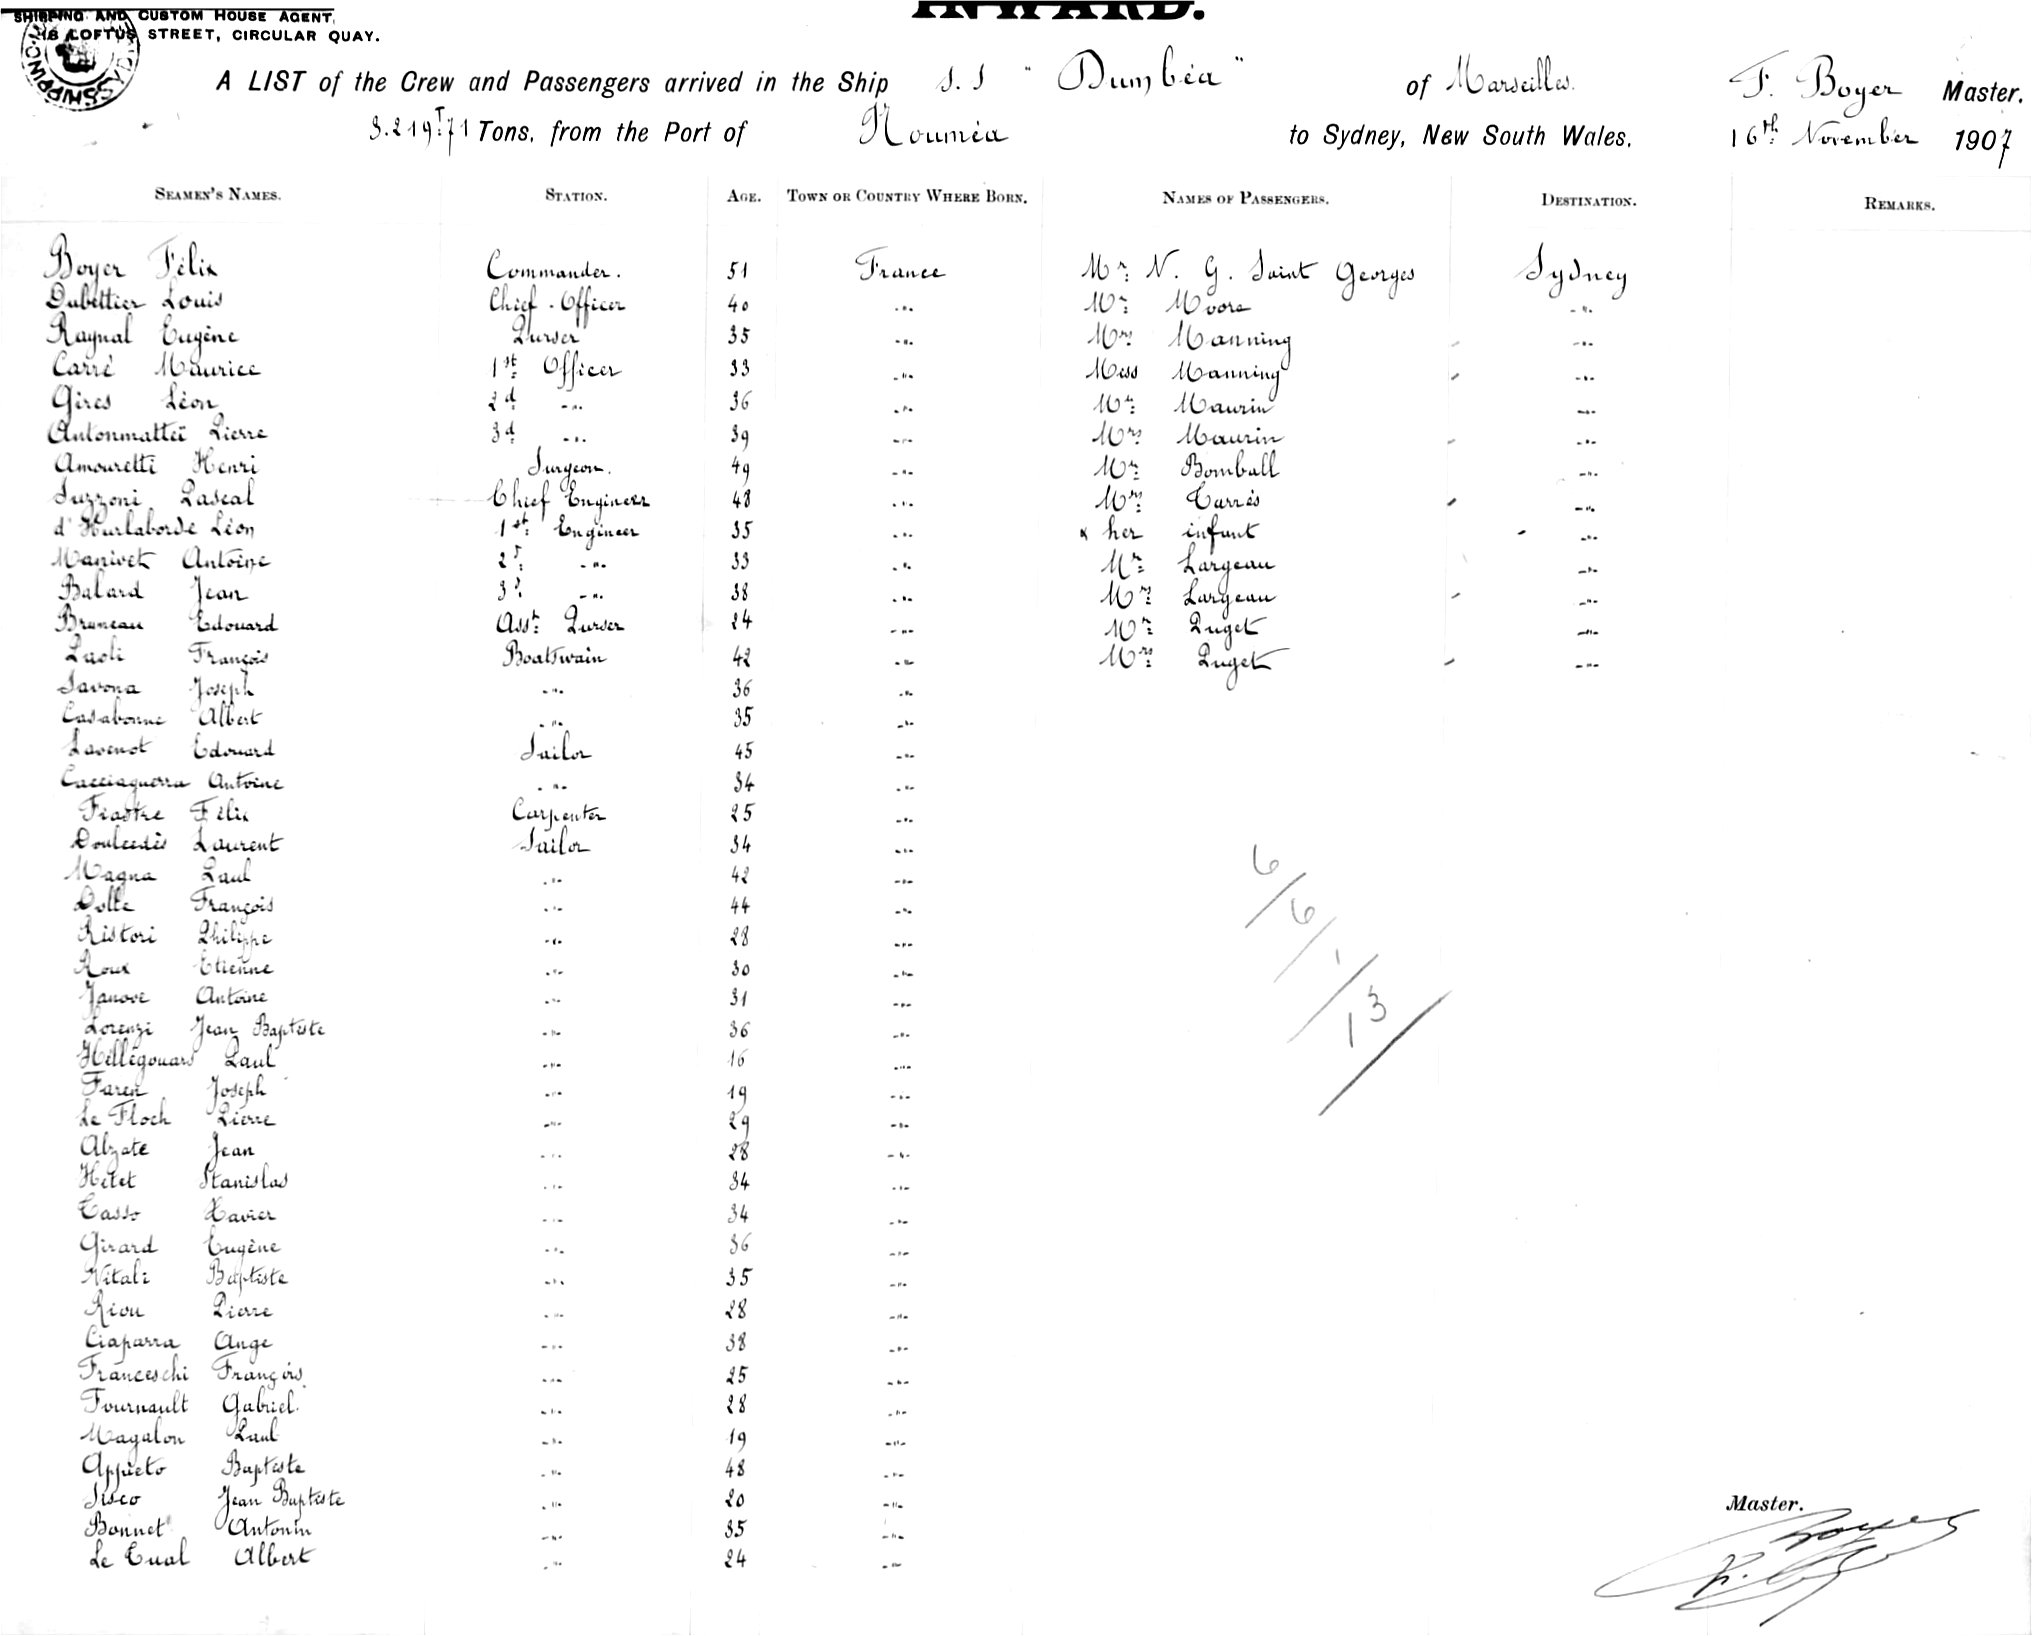 INWARD.
SHIPPING AND CUSTOM HOUSE AGENT,
LOFTUS STREET, CIRCULAR QUAY.
A LIST of the Crew and Passengers arrived in the Ship S.S "Dumbéa" of Marseilles. F. Boyer Master.
3.219 T. 71 Tons, from the Port of Nouméa to Sydney, New South Wales. 16th November 1907
SEAMEN'S NAMES. STATION. AGE. TOWN OR COUNTRY WHERE BORN. NAMES OF PASSENGERS. DESTINATION. REMARKS.
Boyer Félix Commander. 51 France Mr. N. G. Saint Georges Sydney
Dubettier Louis Chief-Officer 40 -"- Mr. Moore -"-
Raynal Eugène Purser 35 -"- Mrs Manning -"-
Carré Maurice 1st Officer 33 -"- Miss Manning -"-
Gires Léon 2d -"- 36 -"- Mr. Maurin -"-
Antonmattei Pierre 3d -"- 39 -"- Mrs Maurin -"-
Amouretti Henri Surgeon. 49 -"- Mr Bomball -"-
Suzzoni Pascal Chief Engineer 48 -"- Mrs Carrés -"-
d'Hurlaborde Léon 1st Engineer 35 -"- & her infant -"-
Manivet Antoine 2d -"- 33 -"- Mr Largeau -"-
Balard Jean 3d -"- 38 -"- Mrs Largeau -"-
Bruneau Edouard Asst Purser 24 -"- Mr Puget -"-
Paoli François Boatswain 42 -"- Mrs Puget -"-
Savona Joseph -"- 36 -"-
Casabonne Albert -"- 35 -"-
Lavenot Edouard Sailor 45 -"-
Cacciaguerra Antoine -"- 34 -"-
Fiastre Félix Carpenter 25 -"-
Doulcedès Laurent Sailor 34 -"-
Magna Paul -"- 42 -"-
Dolle François -"- 44 -"-
Ristori Philippe -"- 28 -"-
Roux Etienne -"- 30 -"-
Janove Antoine -"- 31 -"-
Lorenzi Jean Baptiste -"- 36 -"-
Hellégouars Paul -"- 16 -"-
Faren Joseph -"- 19 -"-
Le Floch Pierre -"- 29 -"-
Alzate Jean -"- 28 -"-
Hétet Stanislas -"- 34 -"-
Casso Xavier -"- 34 -"-
Girard Eugène -"- 36 -"-
Vitali Baptiste -"- 35 -"-
Riou Pierre -"- 28 -"-
Ciaparra Ange -"- 38 -"-
Franceschi François -"- 25 -"-
Fournault Gabriel -"- 28 -"-
Magalon Paul -"- 19 -"-
Appieto Baptiste -"- 48 -"-
Sisco Jean Baptiste -"- 20 -"-
Bonnet Antonin -"- 35 -"-
Le Cual Albert -"- 24 -"-
6/6/1/13
Master.